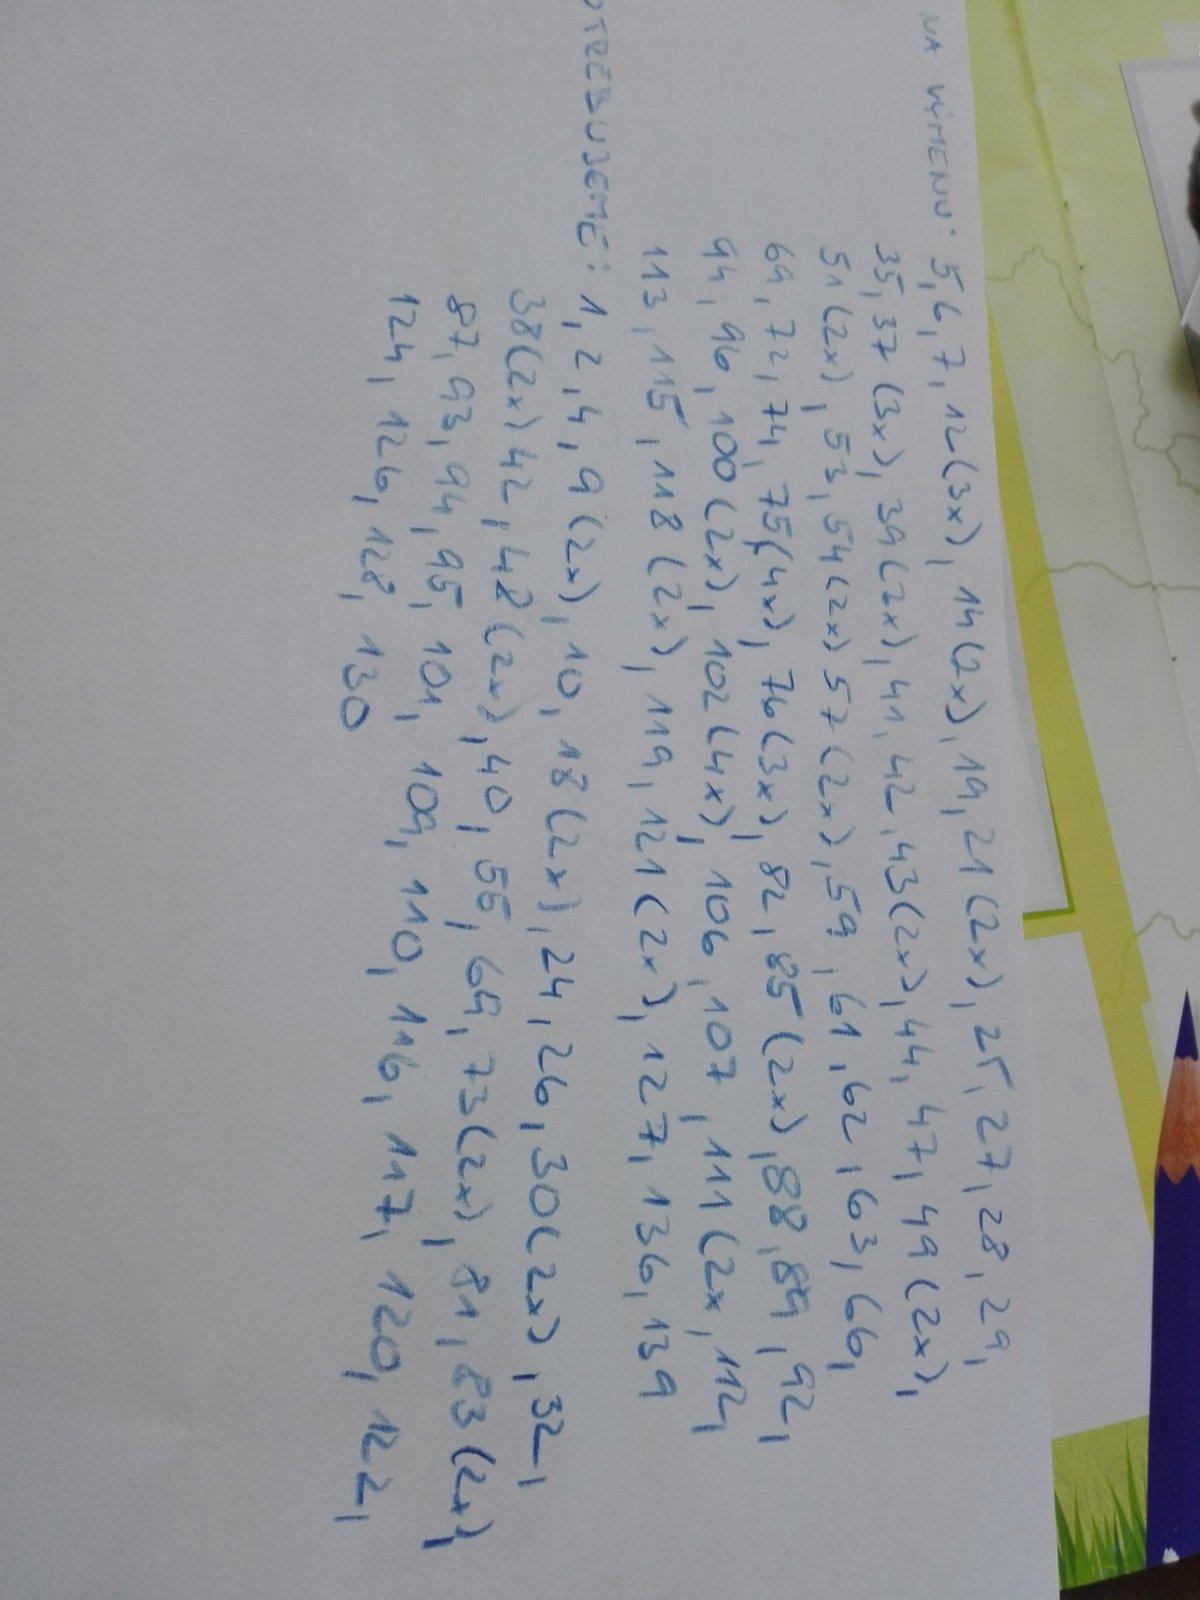 NA VÝMENU: 5,6,7,12(3x), 14(2x), 19, 21(2x), 25, 27, 28, 29,
35, 37(3x), 39(2x), 41, 42, 43(2x), 44, 47, 49(2x),
51(2x), 53, 54(2x) 57(2x), 59, 61, 62, 63, 66,
69, 72, 74, 75(4x), 76(3x), 82, 85(2x), 88, 89, 92,
94, 96, 100(2x), 102(4x), 106, 107, 111(2x, 112,
113, 115, 118(2x), 119, 121(2x), 127, 136, 139
OTREBUJEME: 1, 2, 4, 9(2x), 10, 18(2x), 24, 26, 30(2x), 32,
38(2x) 42, 48(2x), 40, 55, 69, 73(2x), 81, 83(2x),
87, 93, 94, 95, 101, 109, 110, 116, 117, 120, 122,
124, 126, 128, 130